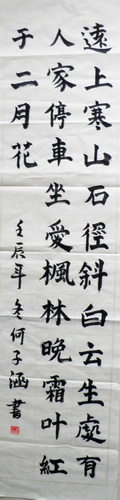 遠上寒山石徑斜白云生處有
人家停車坐愛楓林晚霜叶紅
于二月花
壬辰年冬何子涵書